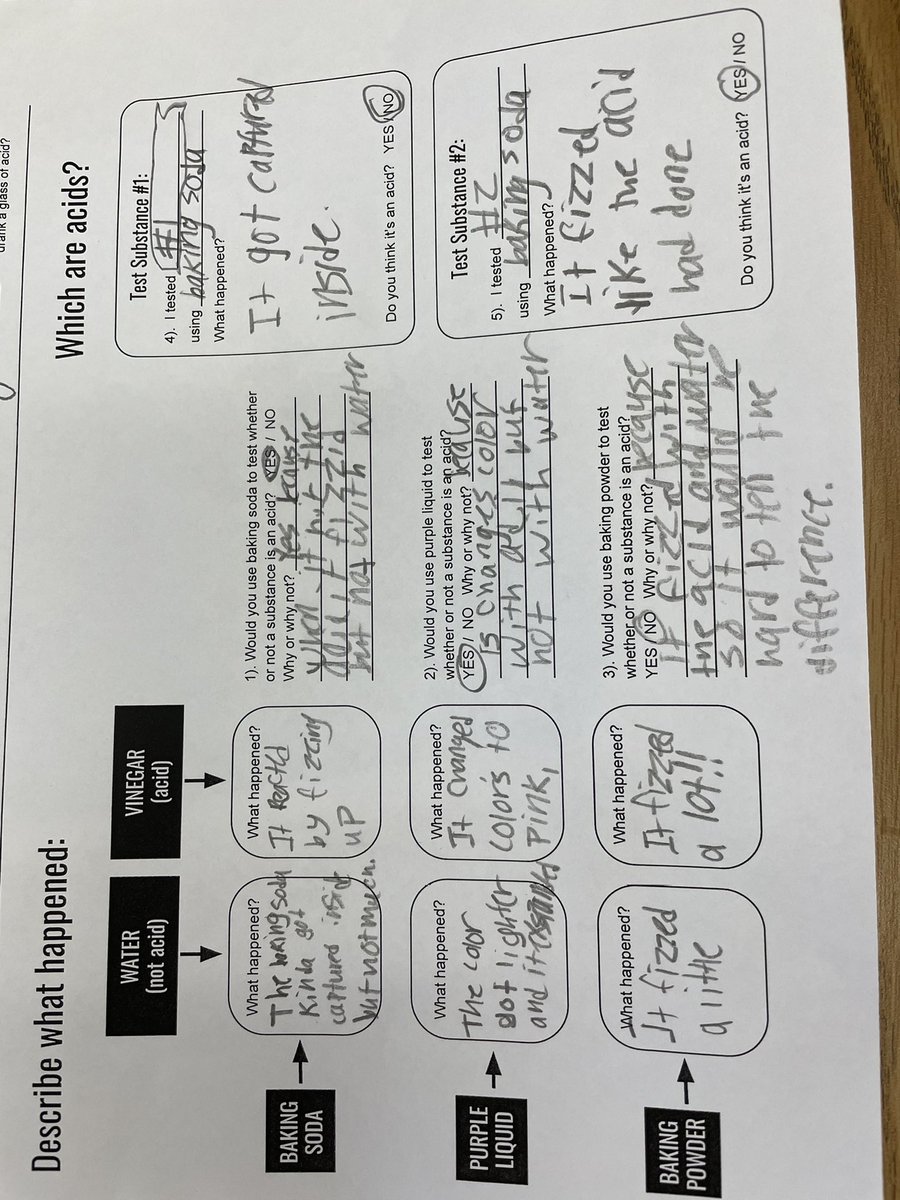 drank a glass of acid?
Describe what happened:
Which are acids?
WATER
(not acid)
VINEGAR
(acid)
BAKING
SODA
What happened?
The baking soda
Kinda got
captured inside
but not much.
What happened?
It reactd
by fizzing
up
1). Would you use baking soda to test whether
or not a substance is an acid? YES / NO
Why or why not? Yes because
when it hit the
acid it fizzid
but not with water
PURPLE
LIQUID
What happened?
The color
got lighter
and it
What happened?
It changed
colors to
pink,
2). Would you use purple liquid to test
whether or not a substance is an acid?
YES / NO Why or why not? because
is changes color
with acid but
not with water
BAKING
POWDER
What happened?
It fizzed
a little
What happened?
It fizzed
a lot!!
3). Would you use baking powder to test
whether or not a substance is an acid?
YES / NO Why or why not? because
it fizzed with
the acid and water
so it would be
hard to tell the
difference.
Test Substance #1:
4). I tested #1
using baking soda
What happened?
It got captured
inside.
Do you think it's an acid? YES / NO
Test Substance #2:
5). I tested #2
using baking soda
What happened?
It fizzed
like the acid
had done
Do you think it's an acid? YES / NO